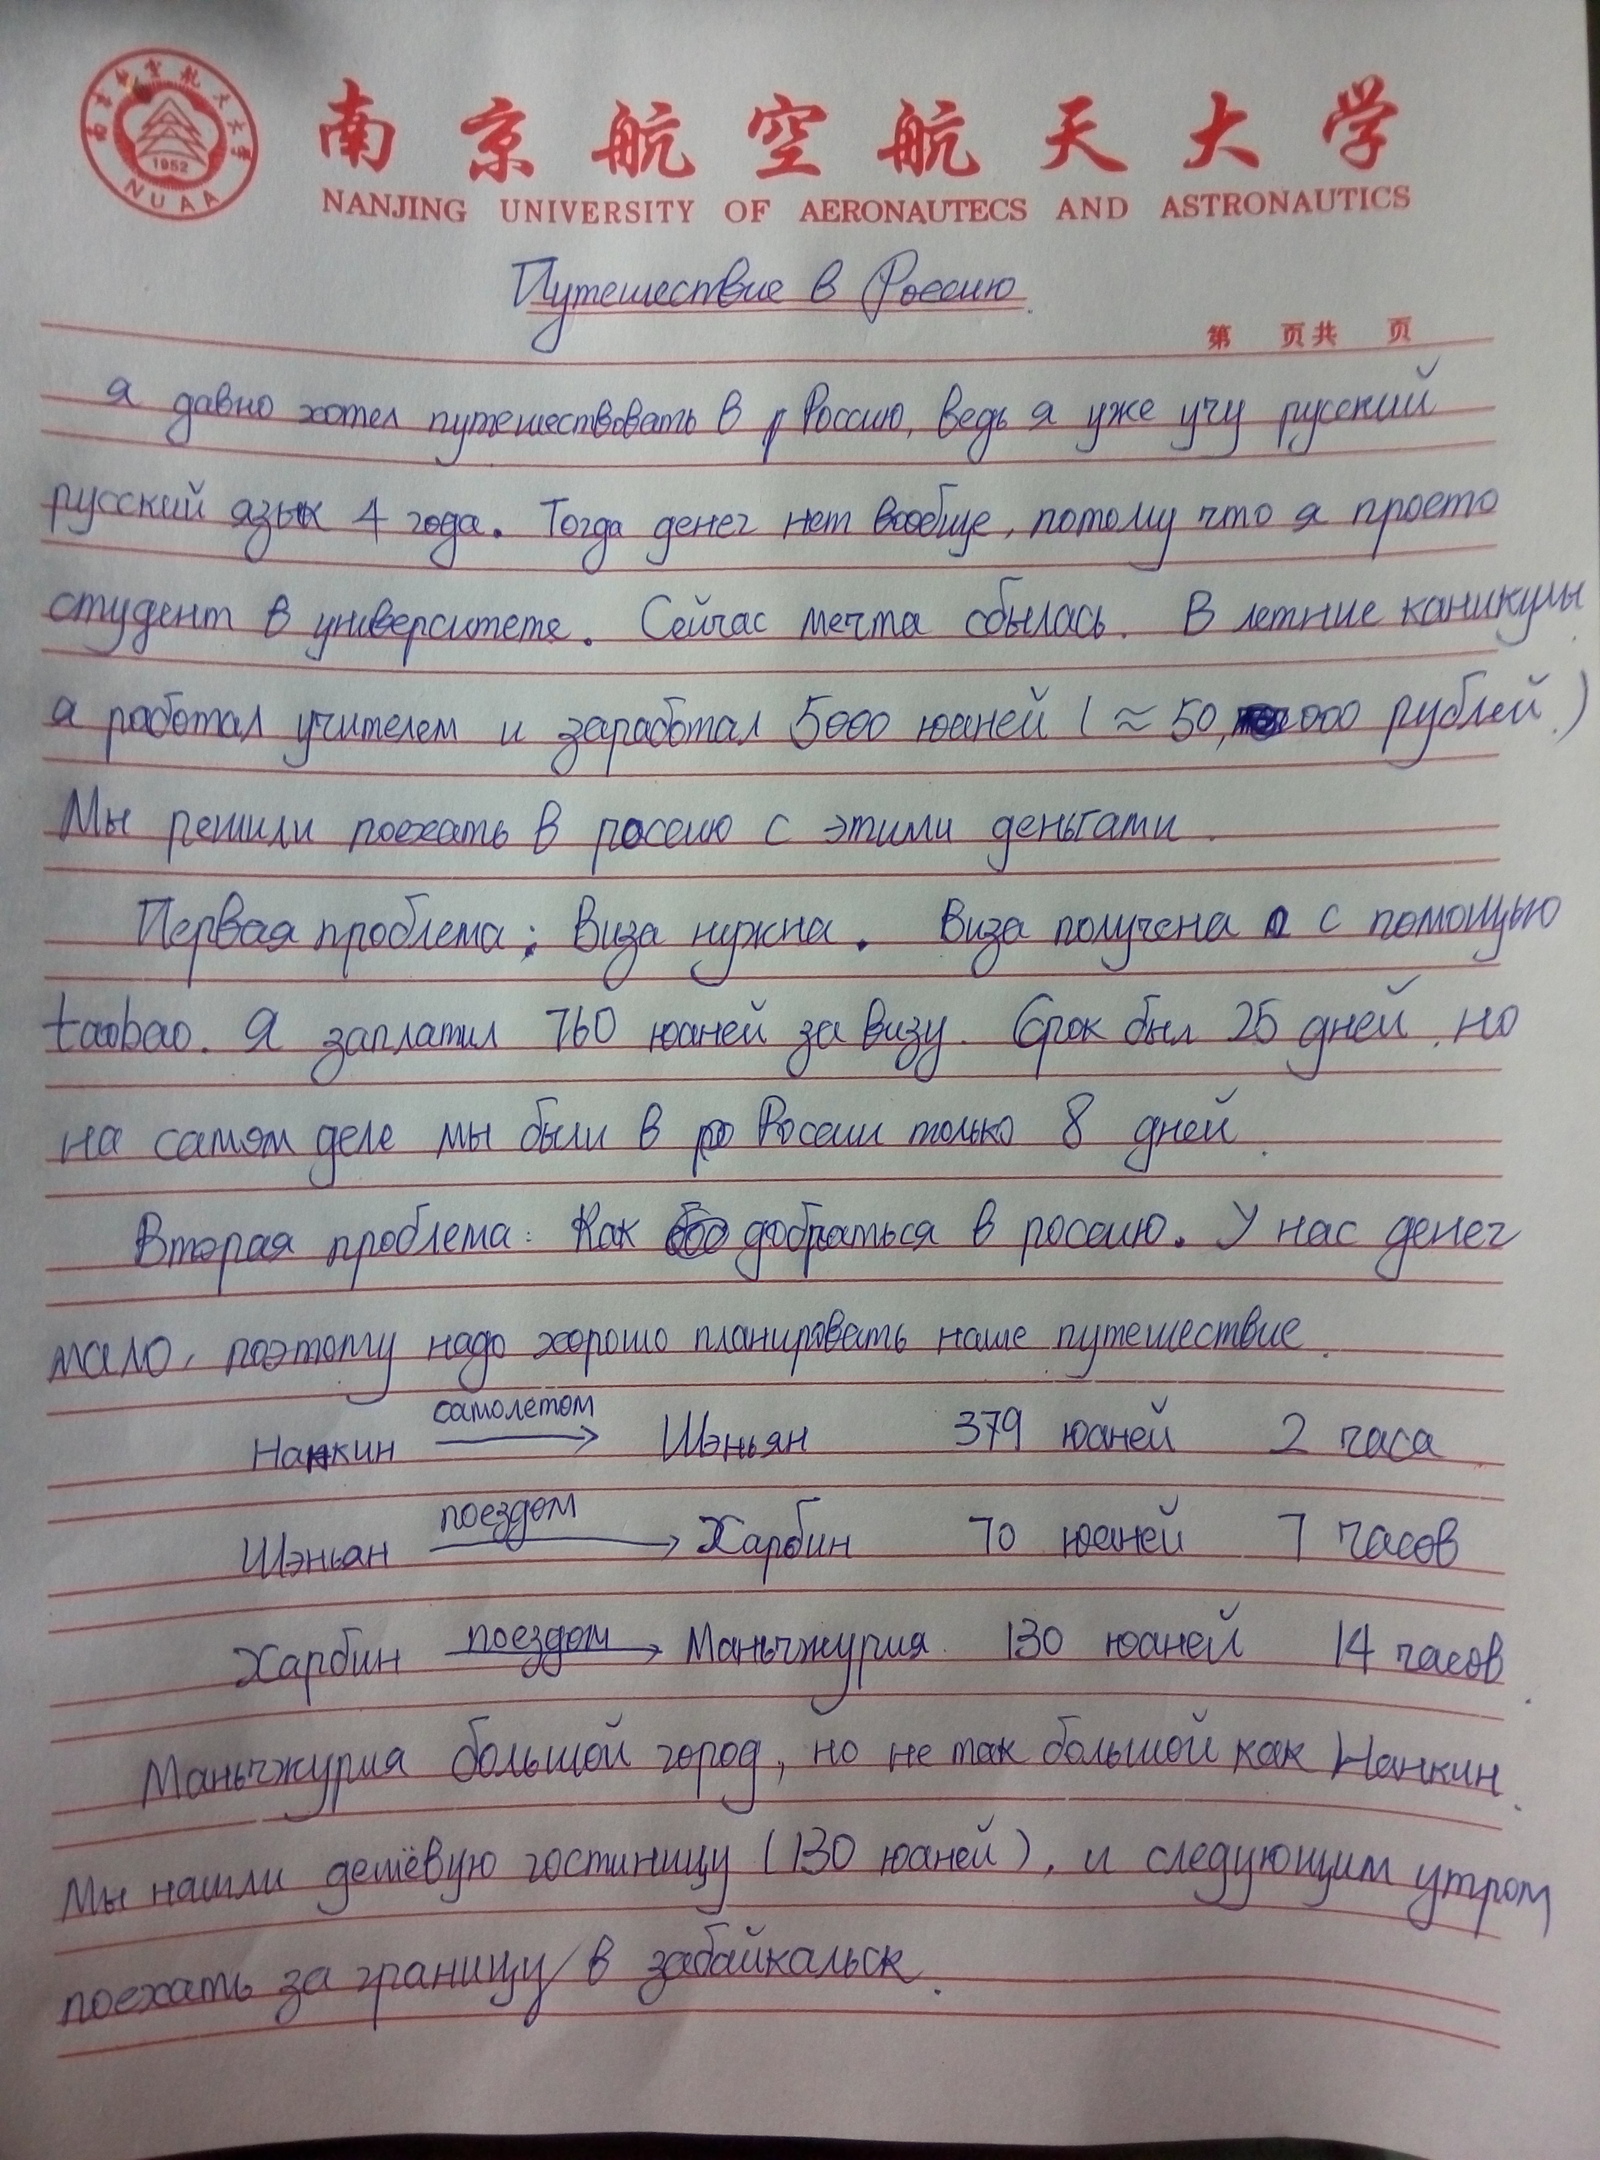 南京航空航天大学
1952
NUAA
NANJING UNIVERSITY OF AERONAUTECS AND ASTRONAUTICS
Путешествие в Россию.
第 页共 页
я давно хотел путешествовать в р Россию, ведь я уже учу русский
русский язык 4 года. Тогда денег нет вообще, потому что я просто
студент в университете. Сейчас мечта сбылась. В летние каникулы
я работал учителем и заработал 5000 юаней (≈50,000 рублей.)
Мы решили поехать в россию с этими деньгами.
Первая проблема: Виза нужна. Виза получена с помощью
taobao. Я заплатил 760 юаней за визу. Срок был 25 дней, но
на самом деле мы были в ро России только 8 дней.
Вторая проблема: Как добраться в россию. У нас денег
мало, поэтому надо хорошо планировать наше путешествие.
Нанкин самолетом → Шэньян 379 юаней 2 часа
Шэньян поездом → Харбин 70 юаней 7 часов
Харбин поездом → Маньчжурия. 130 юаней 14 часов.
Маньчжурия большой город, но не так большой как Нанкин.
Мы нашли дешёвую гостиницу (130 юаней), и следующим утром
поехать за границу в забайкальск.